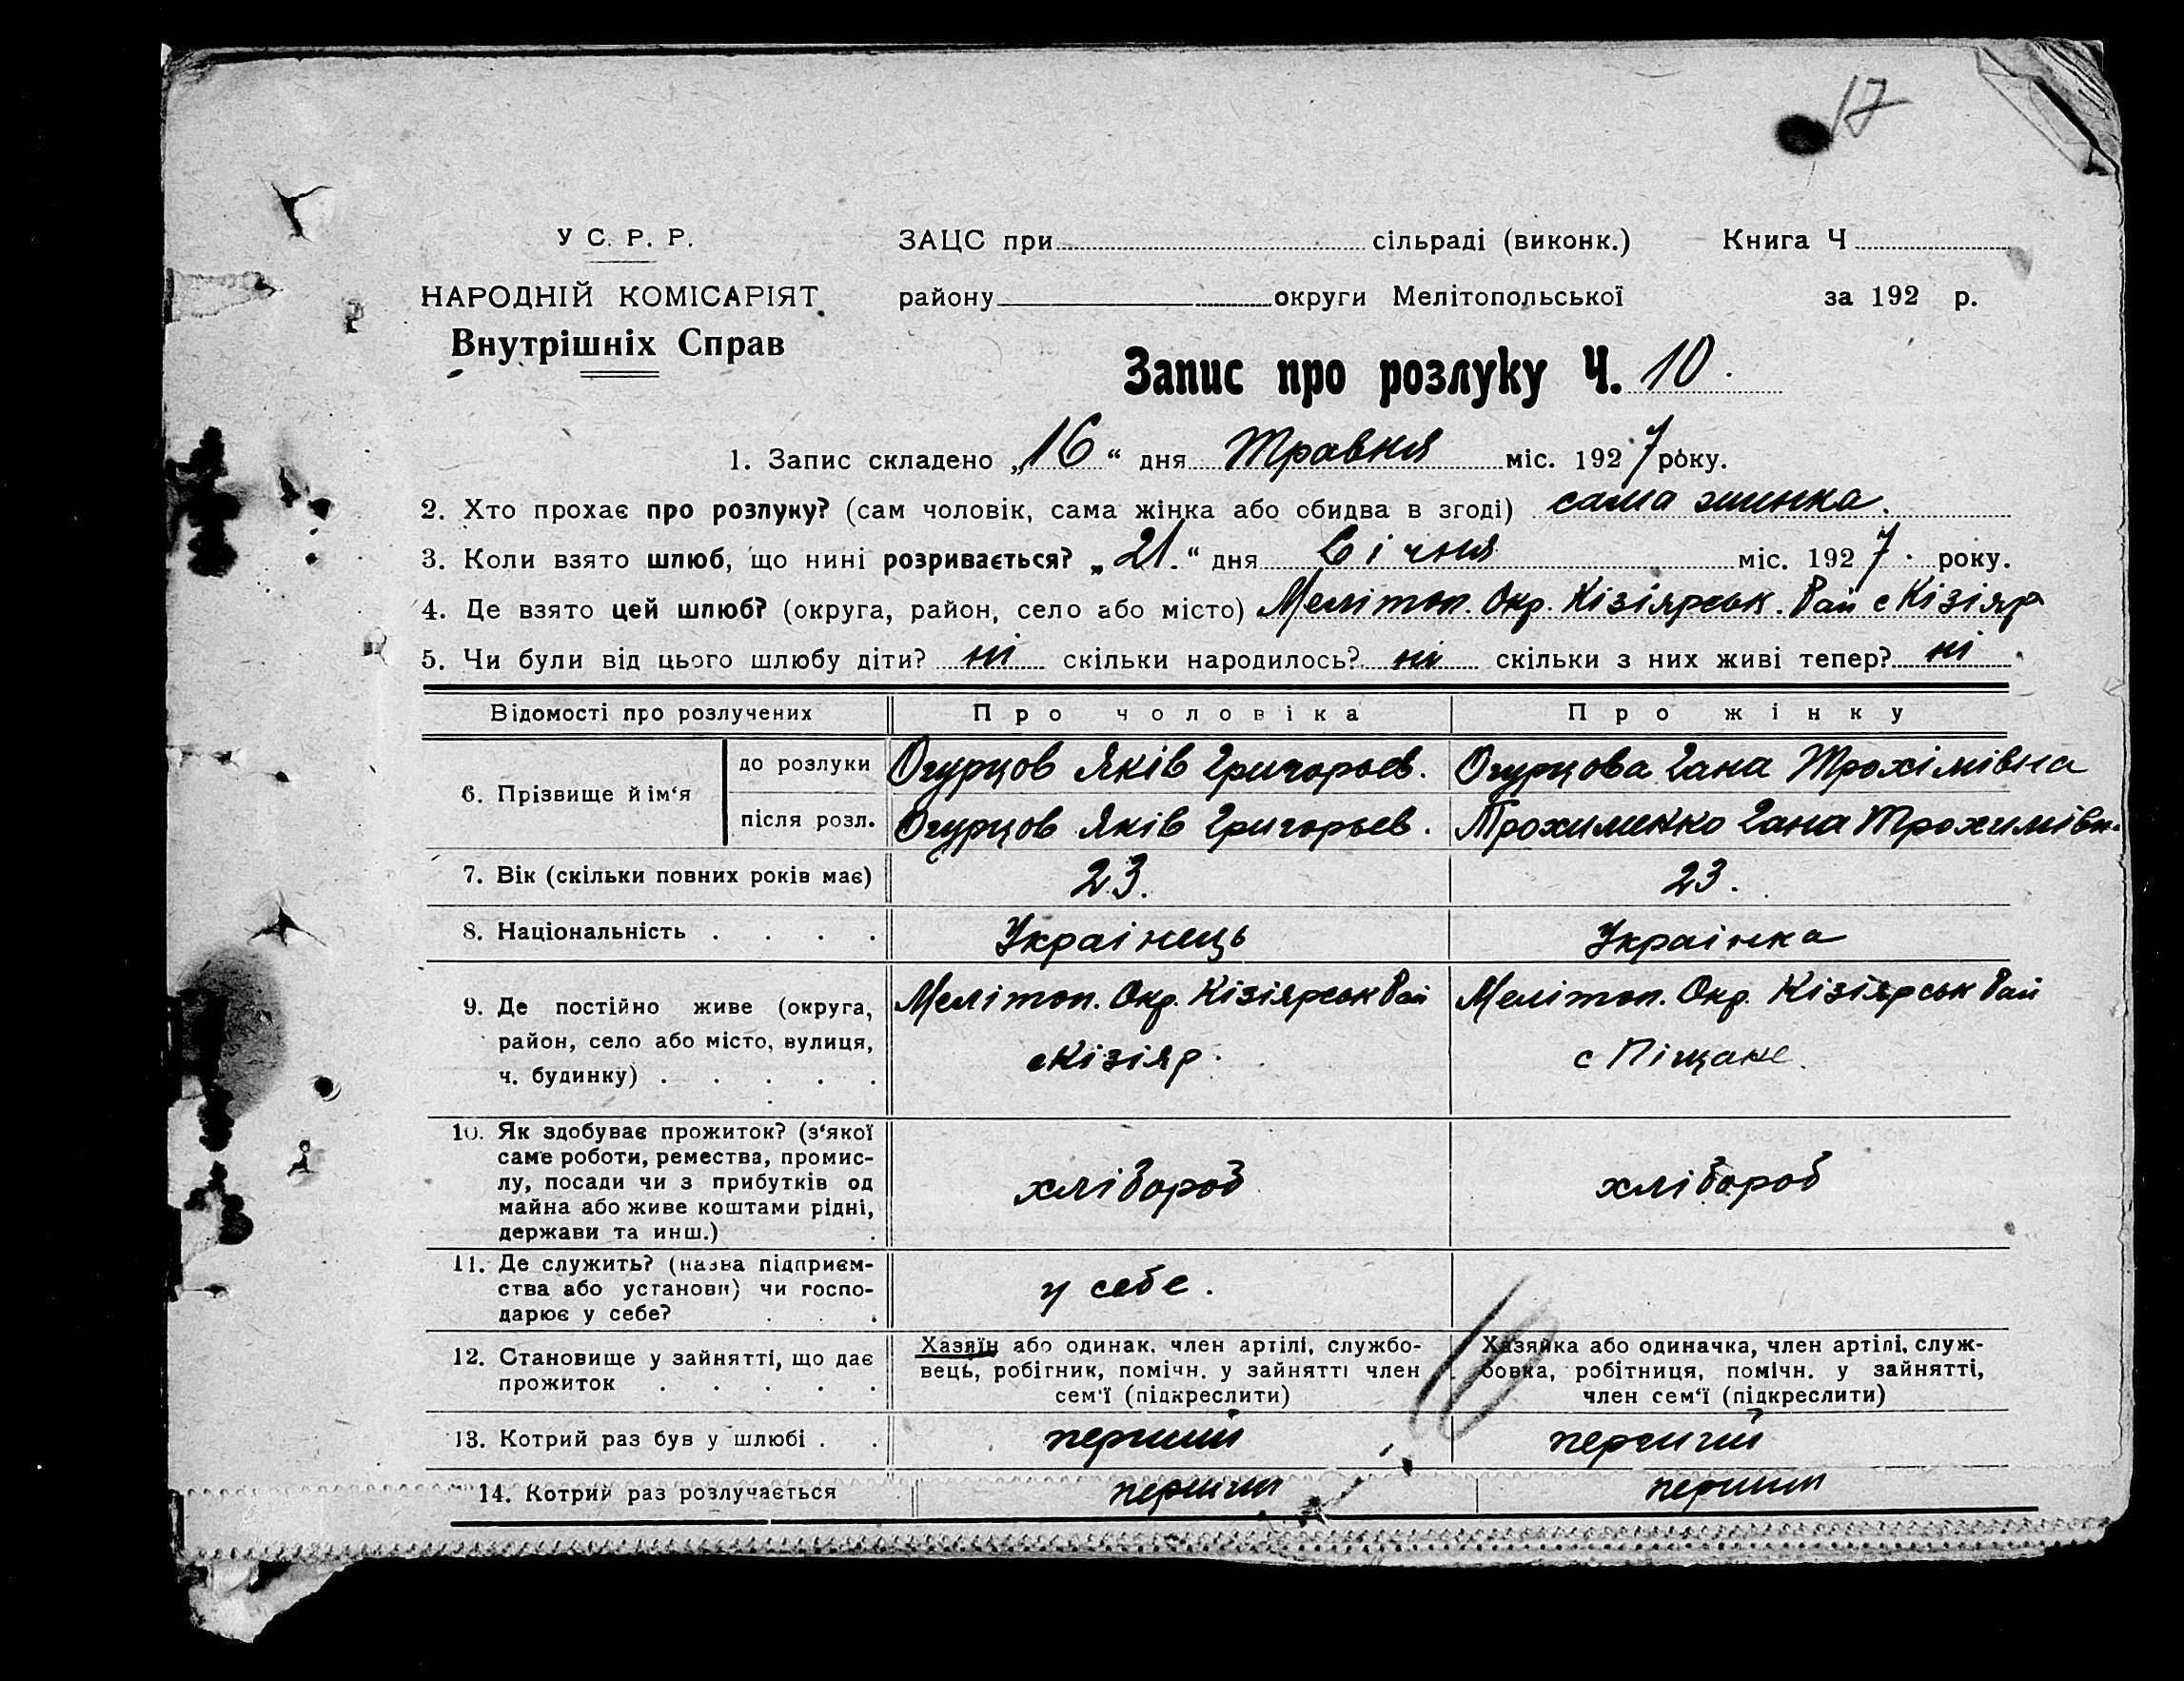 17
У С. Р. Р.
НАРОДНІЙ КОМІСАРІЯТ
Внутрішніх Справ
ЗАЦС при сільраді (виконк.) Книга Ч
району округи Мелітопольської за 192 р.
Запис про розлуку Ч. 10.
1. Запис складено „16“ дня Травня міс. 1927 року.
2. Хто прохає про розлуку? (сам чоловік, сама жінка або обидва в згоді) сама жинка.
3. Коли взято шлюб, що нині розривається? „21.“ дня Січня міс. 1927. року.
4. Де взято цей шлюб? (округа, район, село або місто) Мелітоп. Окр. Кізіярськ. Рай с Кізіяр
5. Чи були від цього шлюбу діти? ні скільки народилось? ні скільки з них живі тепер? ні
Відомості про розлучених Про чоловіка Про жінку
6. Прізвище й ім‘я
до розлуки Огурцов Яків Григорьев. Огурцова Гана Трохімівна
після розл. Огурцов Яків Григорьев. Трохименко Гана Трохимівн.
7. Вік (скільки повних років має) 23. 23.
8. Національність . . . . Украінець Украінка
9. Де постійно живе (округа, Мелітоп. Окр. Кізіярськ Рай Мелітоп. Окр. Кізіярськ Рай
район, село або місто, вулиця, с Кізіяр. с Піщане.
ч. будинку) . . . . .
10. Як здобуває прожиток? (з‘якої
саме роботи, ремества, промис-
лу, посади чи з прибутків од хлібороб хлібороб
майна або живе коштами рідні,
держави та инш.) .
11. Де служить? (назва підприєм-
ства або установи) чи госпо- у себе.
дарює у себе? . . .
12. Становище у зайнятті, що дає
прожиток . . . . .
Хазяїн або одинак. член артілі, службо-
вець, робігник, помічн. у зайнятті член
сем‘ї (підкреслити)
Хазяйка або одиначка, член артілі, служ-
бовка, робітниця, помічн. у зайнятті,
член сем‘ї (підкреслити)
10
13. Котрий раз був у шлюбі . . перший перший
14. Котрий раз розлучається перший перший